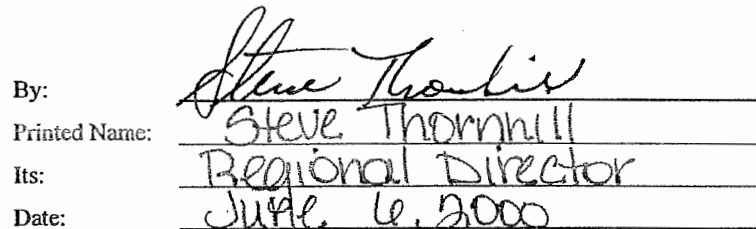 By: Steve Thornhill
Printed Name: Steve Thornhill
Its: Regional Director
Date: June 6, 2000